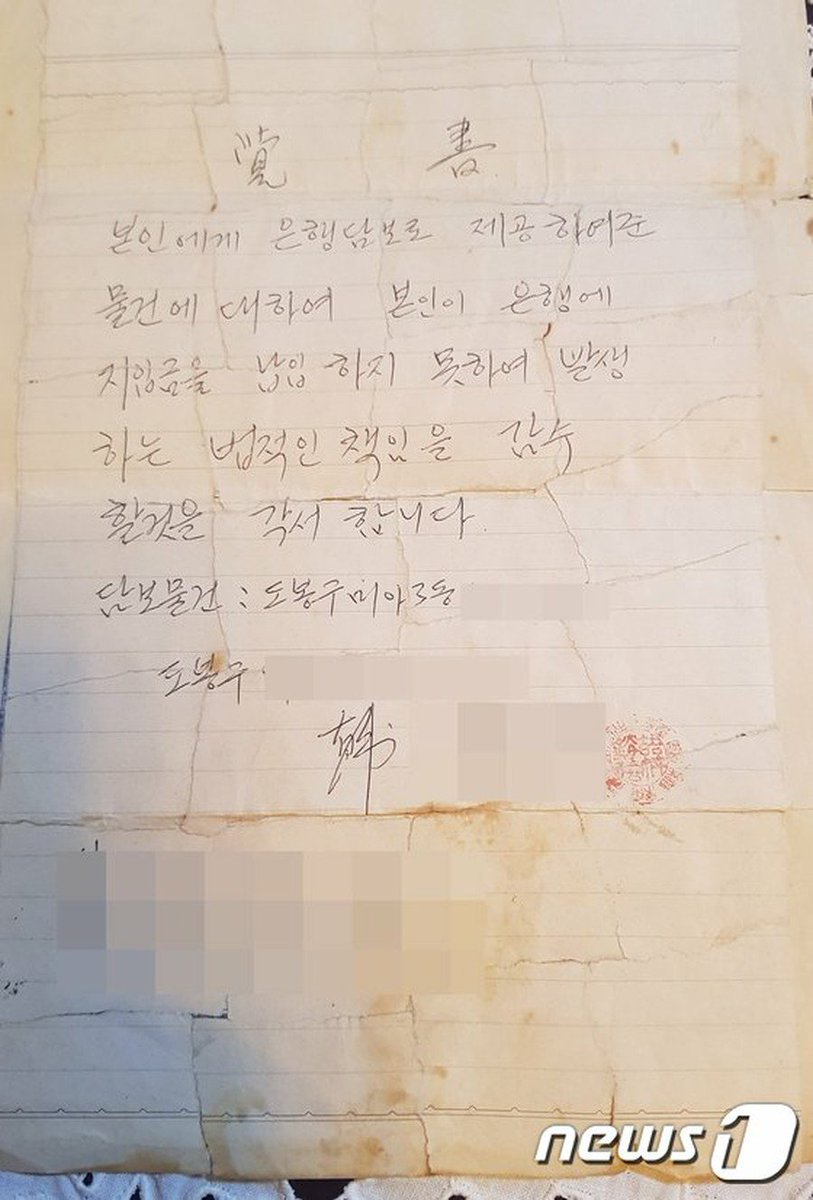 覚 書
본인에게 은행담보로 제공하여준
물건에 대하여 본인이 은행에
지입금을 납입 하지 못하여 발생
하는 법적인 책임을 감수
할것을 각서 합니다.
담보물건 : 도봉구미아3동
도봉구
韓
news1